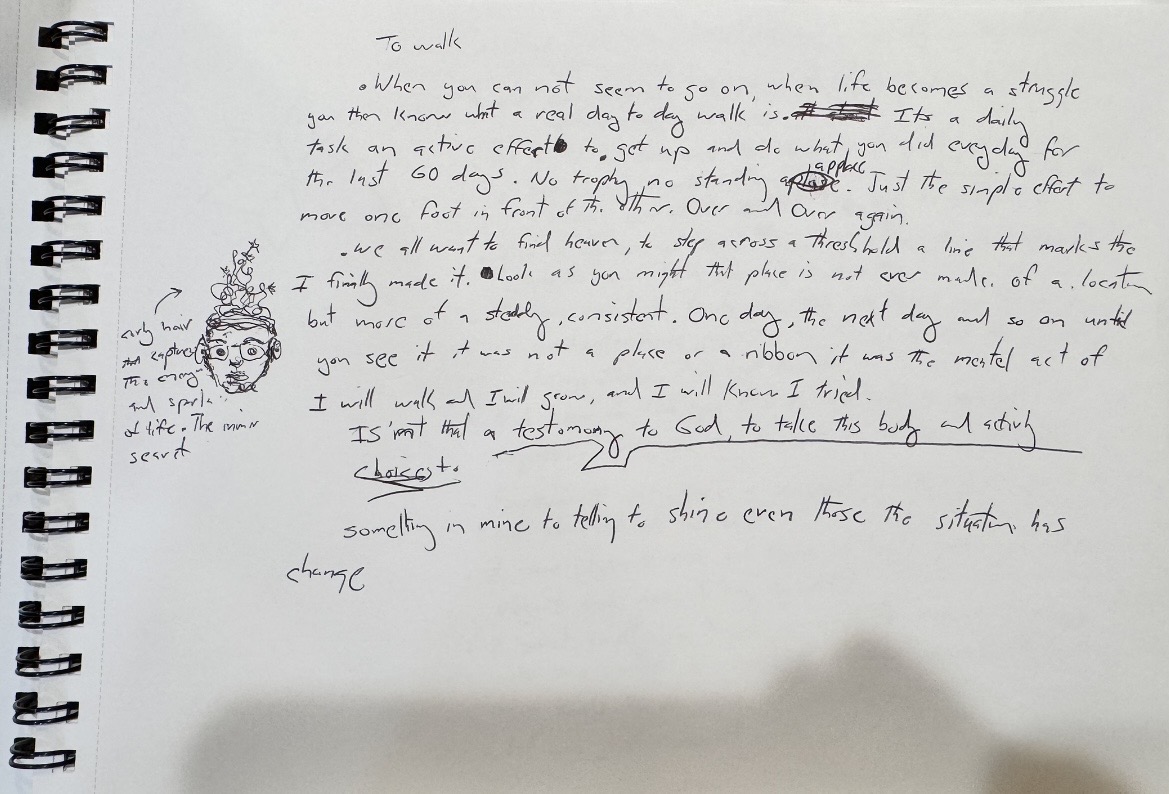 To walk
• When you can not seem to go on, when life becomes a struggle
you then know what a real day to day walk is. Its a daily
task an active effort to get up and do what you did everyday for
the last 60 days. No trophy, no standing applase. Just the simple effort to
move one foot in front of the other. Over and Over again.
• we all want to find heaven, to step across a threshhold a line that marks the
I finally made it. Look as you might that place is not ever made of a location
but more of a steady, consistent. One day, the next day and so on until
you see it it was not a place or a ribbon it was the mental act of
I will walk and I will grow, and I will know I tried.
IS'nt that a testomony to God, to take this body and activly
something in mine to telling to shine even those the situation has
change
curly hair
that captures
the energy
and
of life. The